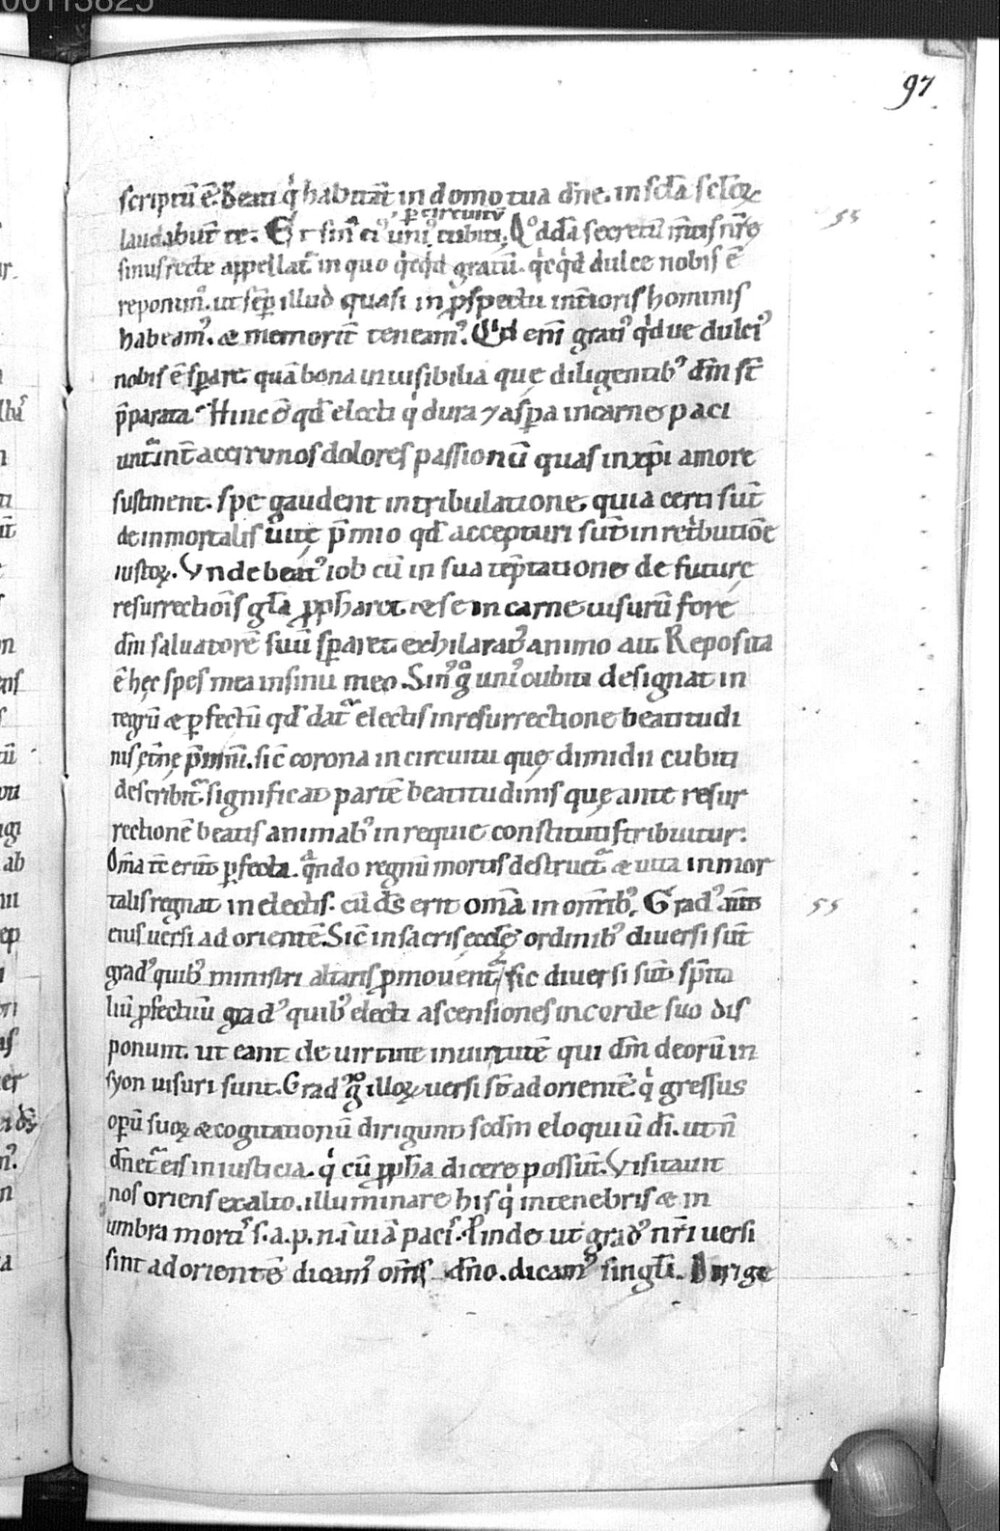 00113825
97
scriptū ē. Beati q̇ habitāt in domo tua dn̄e. in scl̄a scl̄oꝝ
ꝑ circuitū
laudabūt te. Et sin᷒ ei᷒ uni᷒ cubiti. Qͦddā secretū m̄tis nr̄ę
55
sinus recte appellat᷑ in quo q̇cq̇d gratū. q̇cq̇d dulce nobis ē
reponim᷒. ut sēp illud quasi in ꝓspectu int̄ioris hominis
habeam᷒. & memorit̄ teneam᷒. Qḋ eni gratı᷒ q̇d ue dulci᷒
nobis ē sꝑare. quā bona inuisibilia quę diligentib᷒ dm̄ st̄
p̄parata. Hinc ē qd̄ electi q̇ dura ⁊ aspa in carne paci
unt᷑. int̄ acerrimos dolores passionū quas in xp̄i amore
sustinent. spe gaudent in tribulatione, quia certi sūt
de inmortalis uitę p̄mio qd̄ accepturi sūt in ret̄butiōe
iustoꝝ. Vnde beat᷒ iob cū in sua tēptatione de futurę
resurrectiōis gl̄a ꝓph̄aret & se in carne uisurū fore
dm̄ saluatorē suū sꝑaret exhilarat᷒ animo ait. Reposita
ē hęc spes mea in sinu meo. Sin᷒ gͦ uni᷒ cubiti designat in
regrū & ꝑfectū qd̄ dat᷑ electis in resurrectione beatitudi
nis ęt̄nę p̄miū. sic̄ corona in circuitu quę dimidii cubiti
describit᷑ significat partē beatitudinis quę ante resur
rectionē beatis animab᷒ in requie constitutis tribuitur.
Om̄a tc̄ erūt ꝑfecta. qͣndo regnū mortis destruet᷑ & uita inmor
talis regnat in electis. cū ds̄ erit om̄a in om̄ib᷒. Grad᷒
55
eius uersi ad orientē. Sic̄ in sacris ęccl̄ę ordinib᷒ diuersi sūt
grad᷒ quib᷒ ministri altaris ꝓmouent᷑, sic diuersi sūt sp̄ita
liū ꝓfectuū grad᷒ quib᷒ electi ascensiones in corde suo dis
ponunt. ut eant de uirtute in uirtutē qui dm̄ deorū in
syon uisuri sunt. Grad᷒ gͦ illoꝝ uersi st̄ ad orientē. q̇ gressus
oꝑū suoꝝ & cogitationū dirigunt scdm̄ eloquiū dı̄. ut n̄
dn̄et᷑ eis iniusticia. q̇ cū ꝓph̄a dicere possūt. Visitauit
nos oriens ex alto. illuminare his q̇ in tenebris & in
umbra morti᷒ s. a. p. n. ī uiā paci᷒. Proinde ut grad᷒ nr̄i uersi
sint ad orientē dicam᷒ om̄s dn̄o. dicam᷒ singl̄i. Dirige